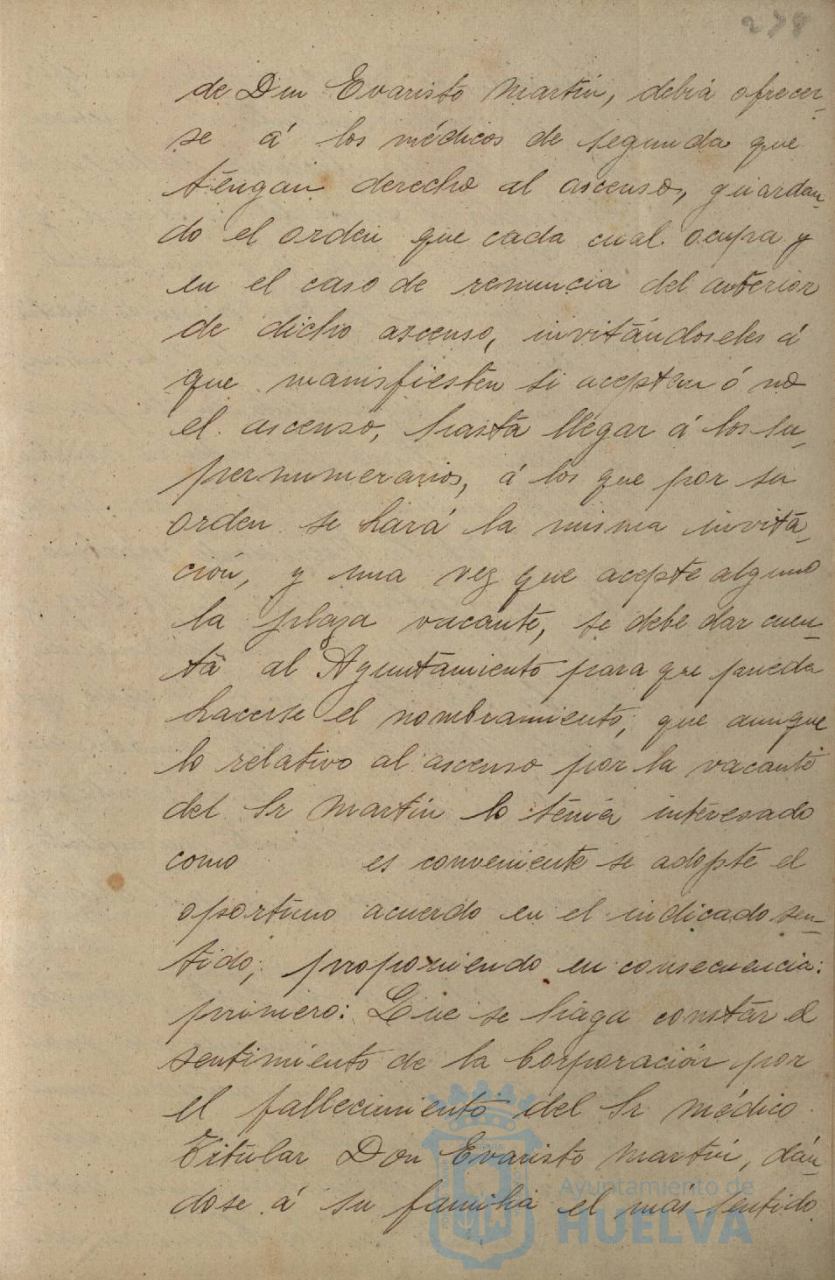 279
de Don Evaristo Martín, debiá ofrecer-
se á los médicos de segunda que
tengan derecho al ascenso, guardan-
do el orden que cada cual ocupa y
en el caso de renuncia del anterior
de dicho ascenso, invitándoseles á
que manisfiesten si aceptan ó no
el ascenso, hasta llegar á los su-
pernumerarios, á los que por su
orden se hará la misma invita-
ción, y una vez que acepte alguno
la plaza vacante, se debe dar cuen-
ta al Ayuntamiento para que pueda
hacerse el nombramiento, que aunque
lo relativo al ascenso por la vacante
del Sr Martín lo tenía interesado
como es conveniente se adopte el
oportuno acuerdo en el indicado sen-
tido, proponiendo en consecuencia:
primero: Que se haga constar el
sentimiento de la Corporación por
el fallecimiento del Sr médico
Titular Don Evaristo Martín, dán-
dose á su familia el mas sentido
Ayuntamiento de
HUELVA